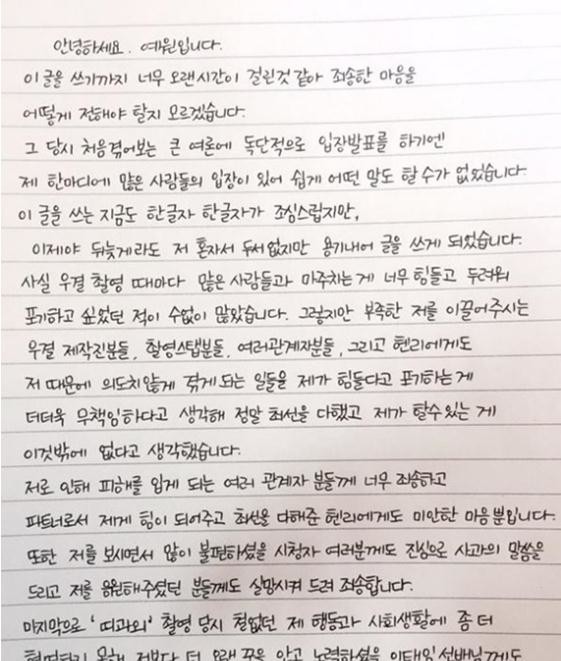 안녕하세요. 예원입니다.
이 글을 쓰기까지 너무 오랜시간이 걸린것 같아 죄송한 마음을
어떻게 전해야 할지 모르겠습니다.
그 당시 처음겪어보는 큰 여론에 독단적으로 입장발표를 하기엔
제 한마디에 많은 사람들의 입장이 있어 쉽게 어떤 말도 할 수가 없었습니다.
이 글을 쓰는 지금도 한글자 한글자가 조심스럽지만,
이제야 뒤늦게라도 저 혼자서 두서없지만 용기내어 글을 쓰게 되었습니다.
사실 우결 촬영 때마다 많은 사람들과 마주치는게 너무 힘들고 두려워
포기하고 싶었던 적이 수없이 많았습니다. 그렇지만 부족한 저를 이끌어주시는
우결 제작진분들, 촬영스탭분들, 여러관계자분들, 그리고 헨리에게도
저 때문에 의도치않게 겪게 되는 일들을 제가 힘들다고 포기하는게
더더욱 무책임하다고 생각해 정말 최선을 다했고 제가 할수있는 게
이것밖에 없다고 생각했습니다.
저로 인해 피해를 입게 되는 여러 관계자 분들께 너무 죄송하고
파트너로서 제게 힘이 되어주고 최선을 다해준 헨리에게도 미안한 마음뿐입니다.
또한 저를 보시면서 많이 불편하셨을 시청자 여러분께도 진심으로 사과의 말씀을
드리고 저를 응원해주셨던 분들께도 실망시켜 드려 죄송합니다.
마지막으로 '띠과외' 촬영 당시 철없던 제 행동과 사회생활에 좀 더
현명하지 못해 저보다 더 오래 꿈을 안고 노력하셨을 이태임 선배님께도